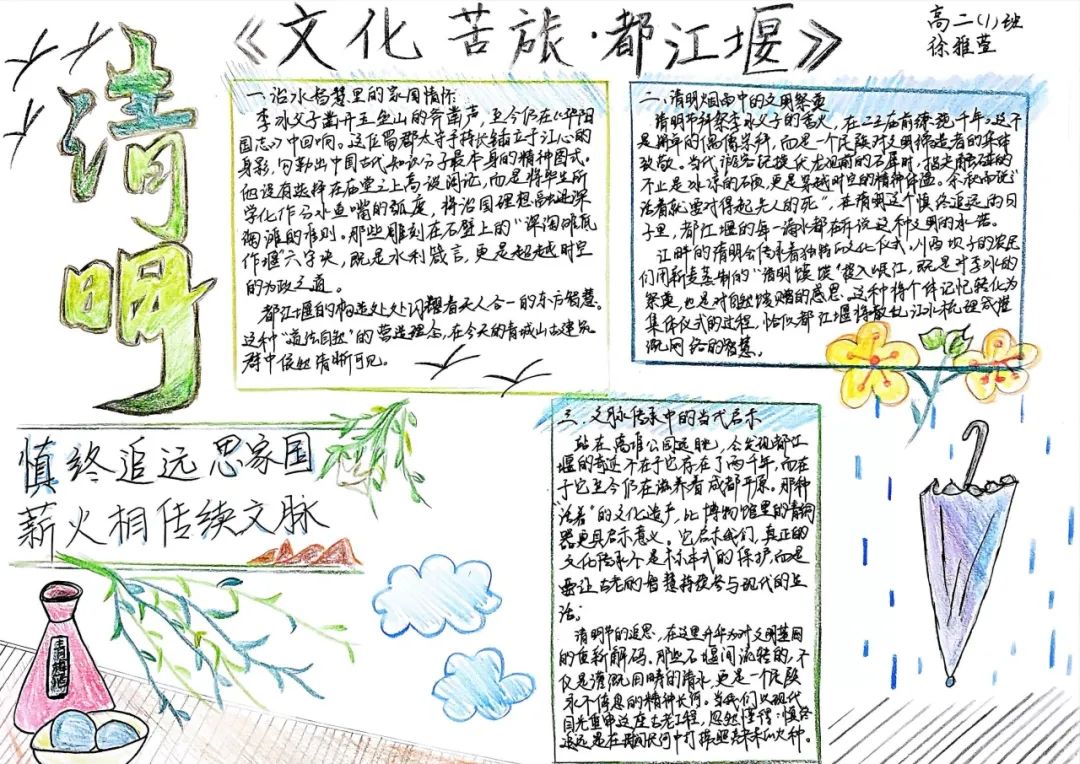 《文化苦旅·都江堰》
高二(1)班
徐雅萱
清明
一、治水智慧里的家国情怀
李冰父子凿开玉垒山的斧凿声，至今仍在《华阳
国志》中回响。这位蜀郡太守手持长锸立于江心的
身影，勾勒出中国古代知识分子最本身的精神图式。
他没有选择在庙堂之上高谈阔论，而是将毕生所
学化作分水鱼嘴的弧度，将治国理想融进深
淘滩的准则。那些雕刻在石壁上的“深淘滩低
作堰”六字诀，既是水利箴言，更是超越时空
的为政之道。
都江堰的构造处处闪耀着天人合一的东方智慧。
这种“道法自然”的营造理念，在今天的青城山古建筑
群中依然清晰可见。
二、清明烟雨中的文明祭奠
清明节祭祭李冰父子的香火，在二王庙前绵延千年。这不
是简单的偶像崇拜，而是一个民族对文明缔造者的集体
致敬。当代游客记
前的石犀时，指尖触碰的
不止是冰凉的石頭，更是穿越时空的精神体温。余秋雨说“
活着就要对得起先人的死”，在清明这个慎终追远的日
子里，都江堰的每一滴水都在诉说这种文明的承诺。
江畔的清明会传承着独特的文化仪式。川西坝子的农民
们用新麦蒸制的“清明馍馍”投入岷江，既是对李冰的
祭奠，也是对自然馈赠的感恩。这种将个体记忆转化为
集体仪式的过程，恰似都江堰将散乱江水梳理成灌
溉网络的智慧。
慎终追远思家国
薪火相传续文脉
三、文脉传承中的当代启示
站在离堆公园远眺，会发现都江
堰的奇迹不在于它存在了两千年，而在
于它至今仍在滋养着成都平原。那种
“活着”的文化遗产，比博物馆里的青铜
器更具启示意义。它启示我们，真正的
文化传承不是标本式的保护，而是
要让古老的智慧持续参与现代的生
活；
清明节的追思，在这里升华为对文明基因
的重新解码。那些石堰间流转的，不
仅是灌溉田畴的清水，更是一个民族
永不停息的精神长河。当我们以现代
目光重审这座古老工程，忽然懂得：慎终
追远是在时间长河中打捞照亮未来的火种。
青梅酒